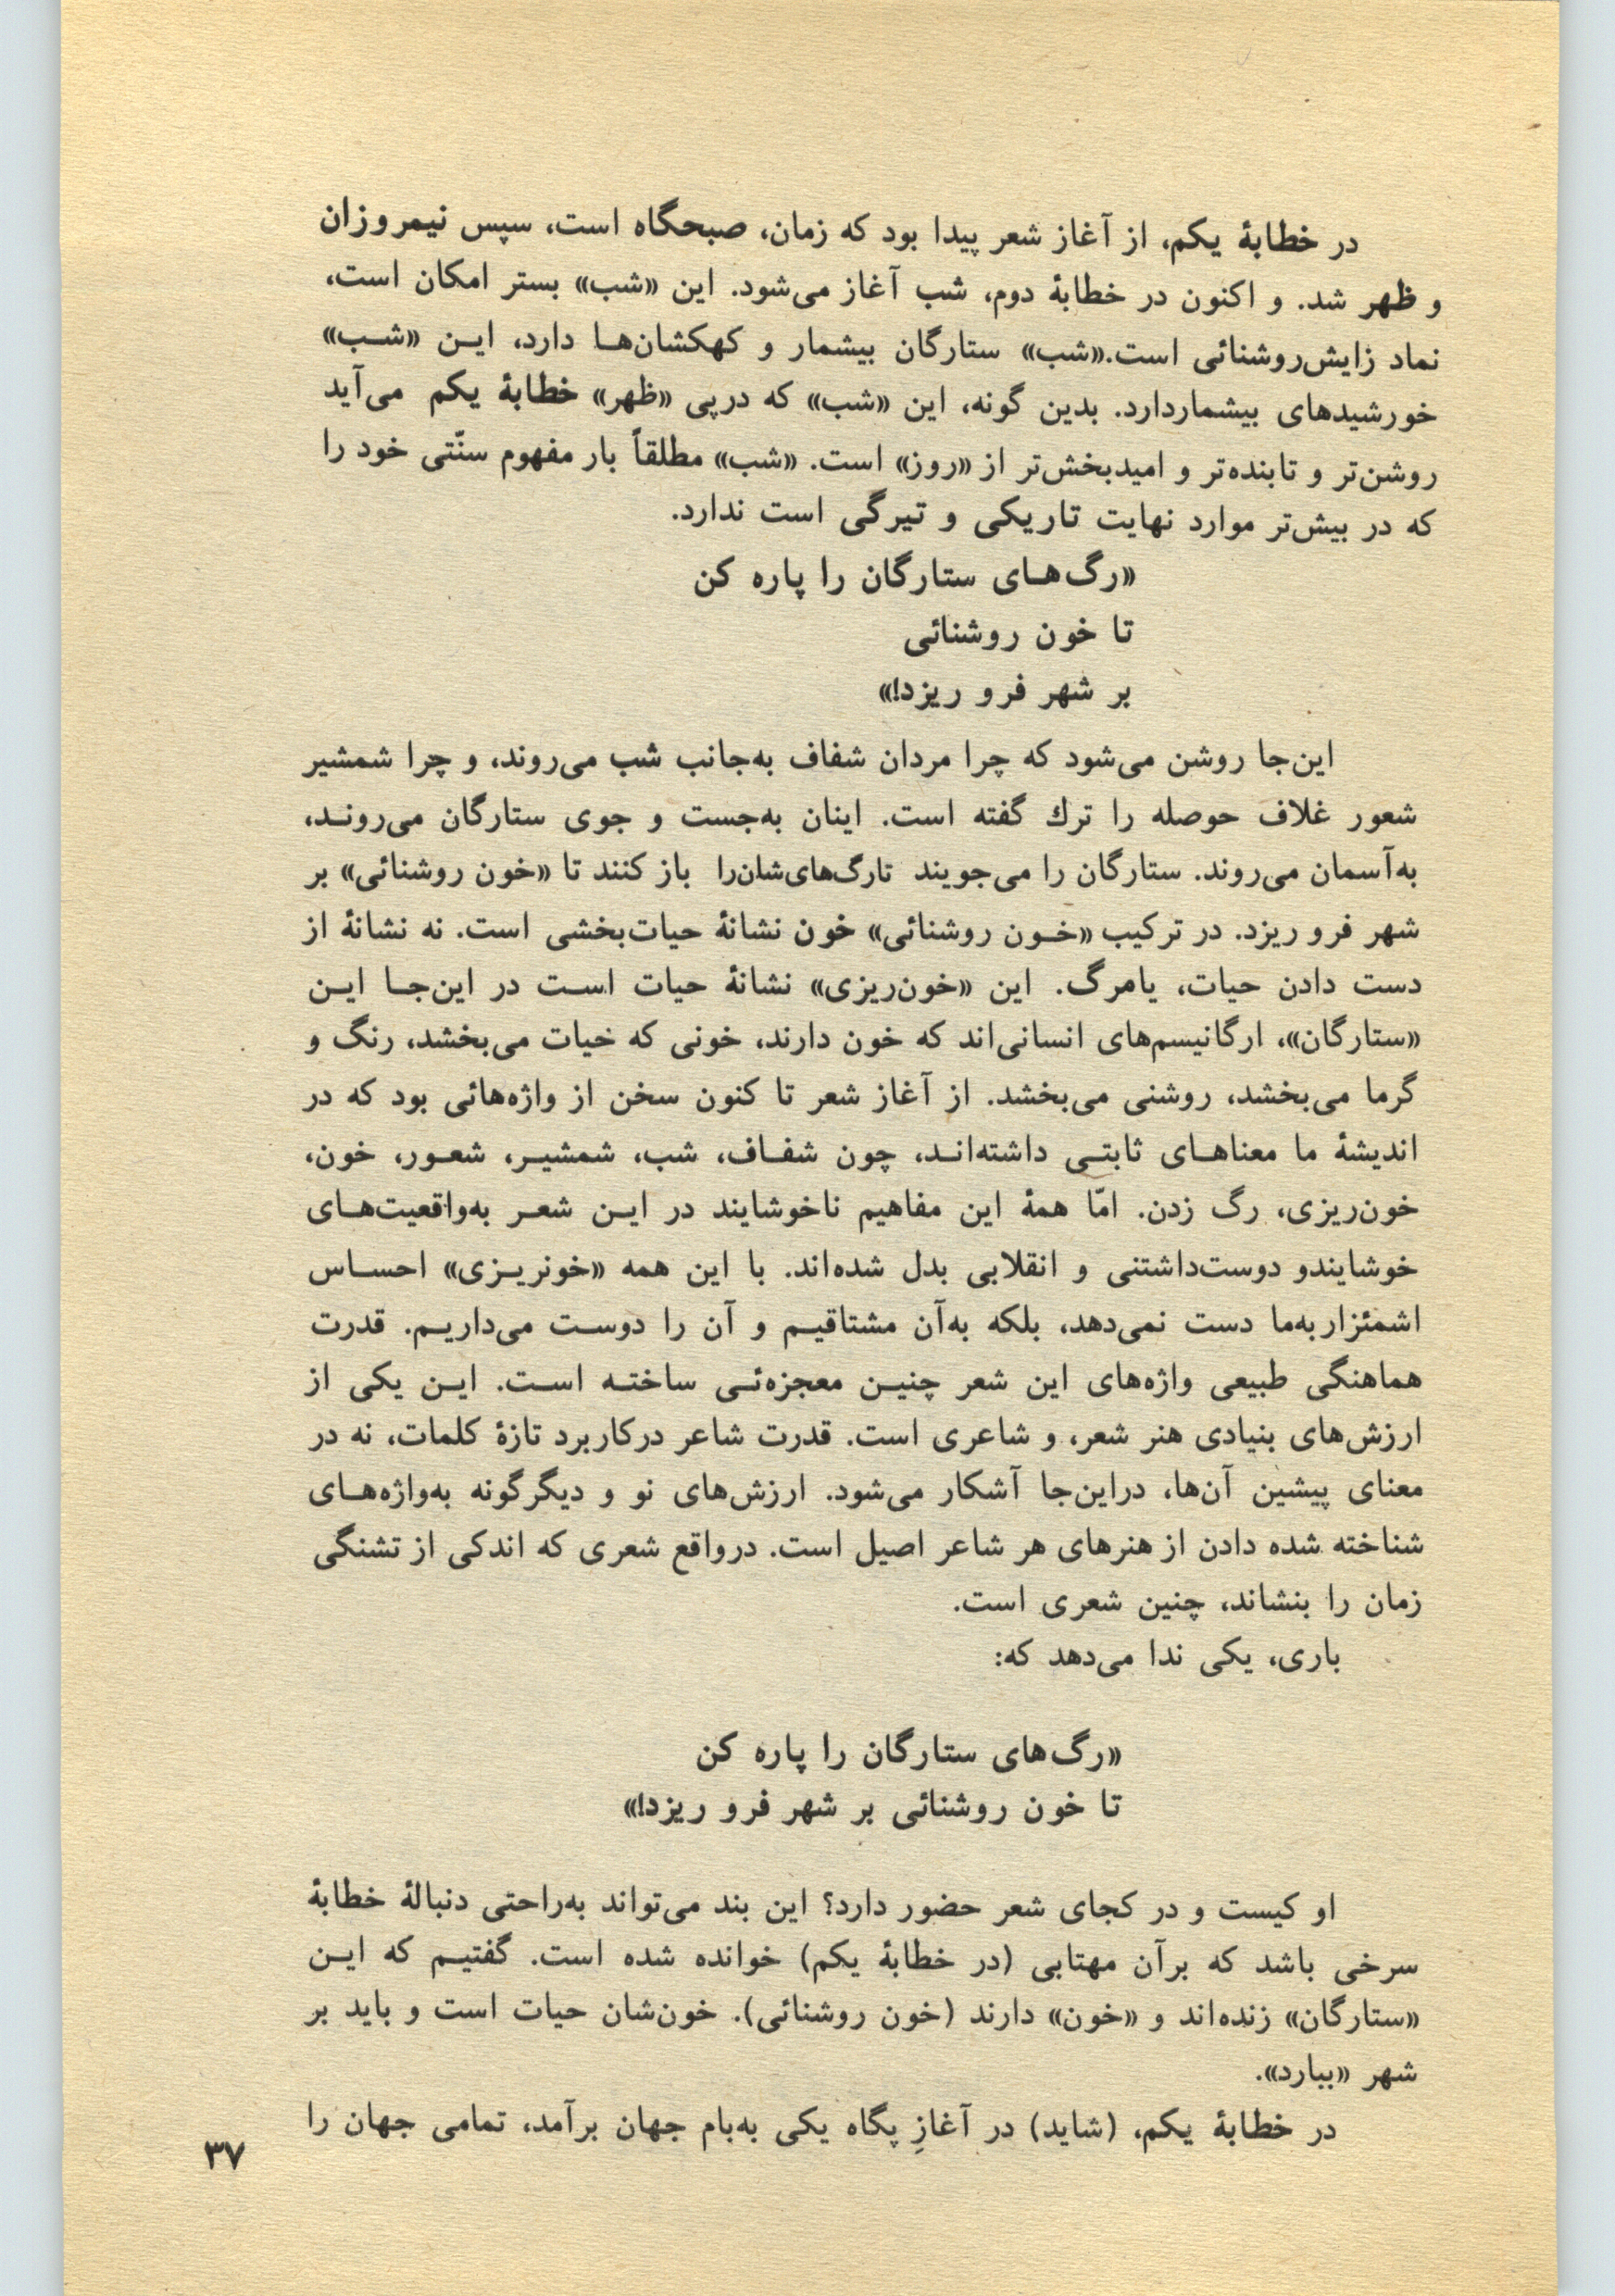 در خطابهٔ یکم، از آغاز شعر پیدا بود که زمان، صبحگاه است، سپس نیمروزان
و ظهر شد. و اکنون در خطابهٔ دوم، شب آغاز می‌شود. این «شب» بستر امکان است،
نماد زایش‌روشنائی است.«شب» ستارگان بیشمار و کهکشان‌ها دارد، این «شب»
خورشیدهای بیشماردارد. بدین گونه، این «شب» که درپی «ظهر» خطابهٔ یکم می‌آید
روشن‌تر و تابنده‌تر و امیدبخش‌تر از «روز» است. «شب» مطلقاً بار مفهوم سنّتی خود را
که در بیش‌تر موارد نهایت تاریکی و تیرگی است ندارد.
«رگ‌های ستارگان را پاره کن
تا خون روشنائی
بر شهر فرو ریزد!»
این‌جا روشن می‌شود که چرا مردان شفاف به‌جانب شب می‌روند، و چرا شمشیر
شعور غلاف حوصله را ترك گفته است. اینان به‌جست و جوی ستارگان می‌روند،
به‌آسمان می‌روند. ستارگان را می‌جویند تارگ‌های‌شان‌را باز کنند تا «خون روشنائی» بر
شهر فرو ریزد. در ترکیب «خون روشنائی» خون نشانهٔ حیات‌بخشی است. نه نشانهٔ از
دست دادن حیات، یامرگ. این «خون‌ریزی» نشانهٔ حیات است در این‌جا این
«ستارگان»، ارگانیسم‌های انسانی‌اند که خون دارند، خونی که حیات می‌بخشد، رنگ و
گرما می‌بخشد، روشنی می‌بخشد. از آغاز شعر تا کنون سخن از واژه‌هائی بود که در
اندیشهٔ ما معناهای ثابتی داشته‌اند، چون شفاف، شب، شمشیر، شعور، خون،
خون‌ریزی، رگ زدن. امّا همهٔ این مفاهیم ناخوشایند در این شعر به‌واقعیت‌های
خوشایندو دوست‌داشتنی و انقلابی بدل شده‌اند. با این همه «خونریزی» احساس
اشمئزاربه‌ما دست نمی‌دهد، بلکه به‌آن مشتاقیم و آن را دوست می‌داریم. قدرت
هماهنگی طبیعی واژه‌های این شعر چنین معجزه‌ئی ساخته است. این یکی از
ارزش‌های بنیادی هنر شعر، و شاعری است. قدرت شاعر درکاربرد تازهٔ کلمات، نه در
معنای پیشین آن‌ها، دراین‌جا آشکار می‌شود. ارزش‌های نو و دیگرگونه به‌واژه‌های
شناخته شده دادن از هنرهای هر شاعر اصیل است. درواقع شعری که اندکی از تشنگی
زمان را بنشاند، چنین شعری است.
باری، یکی ندا می‌دهد که:
«رگ‌های ستارگان را پاره کن
تا خون روشنائی بر شهر فرو ریزد!»
او کیست و در کجای شعر حضور دارد؟ این بند می‌تواند به‌راحتی دنبالهٔ خطابهٔ
سرخی باشد که برآن مهتابی (در خطابهٔ یکم) خوانده شده است. گفتیم که این
«ستارگان» زنده‌اند و «خون» دارند (خون روشنائی). خون‌شان حیات است و باید بر
شهر «ببارد».
در خطابهٔ یکم، (شاید) در آغازِ پگاه یکی به‌بام جهان برآمد، تمامی جهان را
۳۷